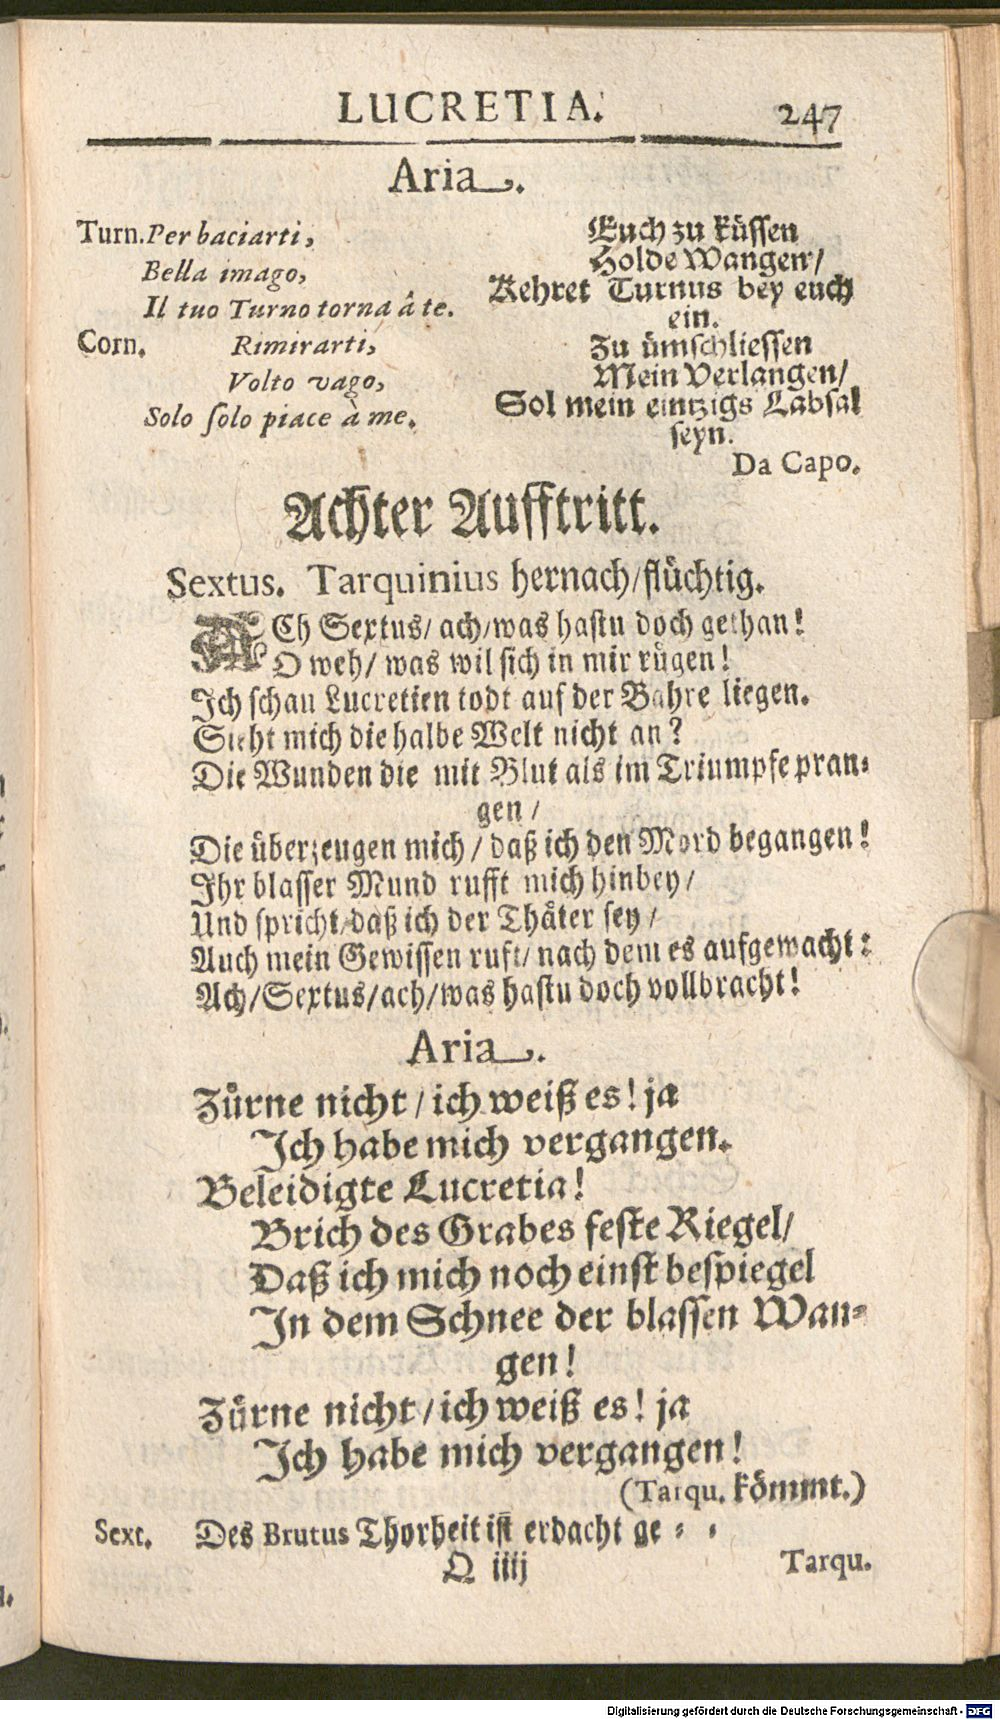 LUCRETIA.
247
Aria.
Turn. Per baciarti,
Bella imago,
Il tuo Turno torna â te.
Corn. Rimirarti,
Volto vago,
Solo ſolo piace à me.
Euch zu kuͤſſen
Holde Wangen/
Kehret Turnus bey euch
ein.
Zu uͤmſchlieſſen
Mein Verlangen/
Sol mein eintzigs Labſal
ſeyn.
Da Capo.
Achter Aufftritt.
Sextus. Tarquinius hernach/fluͤchtig.
ACh Sextus/ ach/was haſtu doch gethan!
O weh/ was wil ſich in mir ruͤgen!
Ich ſchau Lucretien todt auf der Bahre liegen.
Sieht mich die halbe Welt nicht an?
Die Wunden die mit Blut als im Triumpfe pran-
gen/
Die uͤberzeugen mich/ daß ich den Mord begangen!
Ihr blaſſer Mund rufft mich hinbey/
Und ſpricht/daß ich der Thaͤter ſey/
Auch mein Gewiſſen ruft/ nach dem es aufgewacht:
Ach/Sextus/ach/was haſtu doch vollbracht!
Aria.
Zuͤrne nicht/ich weiß es! ja
Ich habe mich vergangen.
Beleidigte Lucretia!
Brich des Grabes feſte Riegel/
Daß ich mich noch einſt beſpiegel
In dem Schnee der blaſſen Wan-
gen!
Zuͤrne nicht/ich weiß es! ja
Ich habe mich vergangen!
(Tarqu. koͤmmt.)
Sext. Des Brutus Thorheit iſt erdacht ge - -
Q iiij
Tarqu.
Digitalisierung gefördert durch die Deutsche Forschungsgemeinschaft - DFG